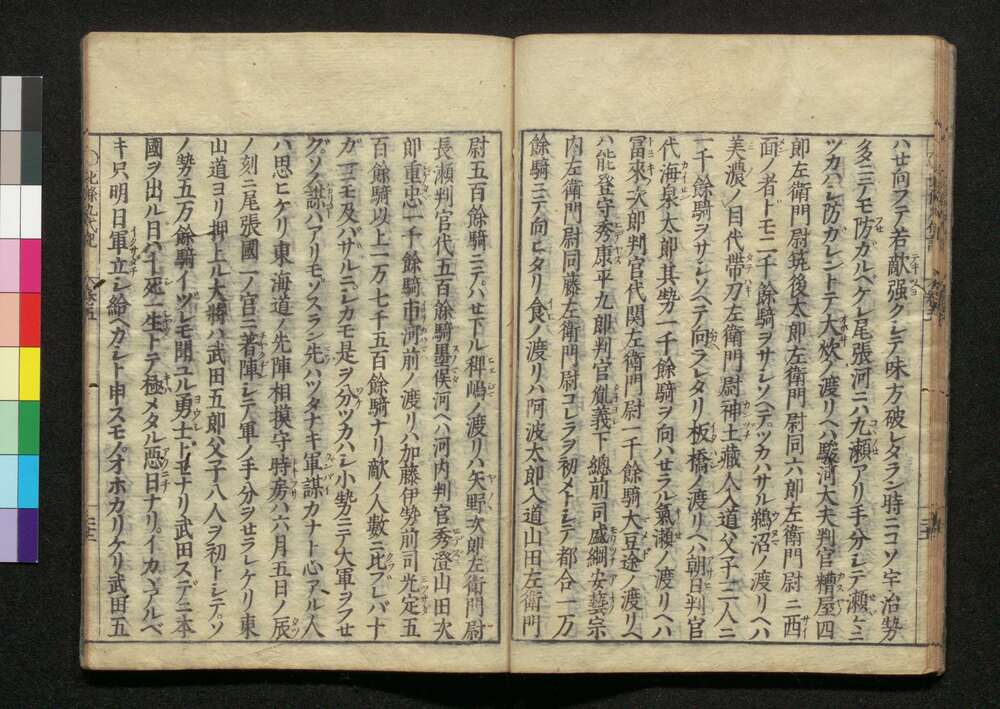 ハせ向フテ若敵强クレテ味方破レタラン時ニコソ宇治勢
多ニテモ防ガルベケレ尾張河ニハ九瀬アリ手分シテ瀬々ニ
ツカハシ防ガレントテ大炊ノ渡リヘハ駿河大夫判官糟屋四
郎左衛門尉筑後太郎左衛門尉同六郎左衛門尉ニ西
面ノ者ドモ二千餘騎ヲサシソヘテツカハサル鵜沼ノ渡リヘハ
美濃ノ目代帯刀左衛門尉神土藏人入道父子三人ニ
一千餘騎ヲサシソヘテ向ラレタリ板橋ノ渡リヘハ朝日判官
代海泉太郎其勢一千餘騎ヲ向ハせラル氣瀬ノ渡リヘハ
冨來次郎判官代関左衛門尉一千餘騎大豆途ノ渡リヘ
ハ能登守秀康平九郎判官胤義下總前司盛綱安藝宗
内左衛門尉同藤左衛門尉コレラヲ初メトシテ都合一万
餘騎ニテ向ヒタリ食ノ渡リハ阿波太郎入道山田左衛門
尉五百餘騎ニテハせ下ル稗嶋ノ渡リハ矢野次郎左衛門尉
長瀬判官代五百餘騎墨俣河ヘハ河内判官秀澄山田次
郎重忠一千餘騎市河前ノ渡リハ加藤伊勢前司光定五
百餘騎以上一万七千五百餘騎ナリ敵ノ人數ニ比フレバ十
ガ一ニモ及ハザルニシカモ是ヲ分ツカハシ小勢ニテ大軍ヲフせ
グソノ謀ハアリモゾスラン先ハツタナキ軍謀カナト心アル人
ハ思ヒケリ東海道ノ先陣相摸守時房ハ六月五日ノ辰
ノ刻ニ尾張國一ノ宮ニ著陣シテ軍ノ手分ヲせラレケリ東
山道ヨリ押上ル大將ハ武田五郎父子八人ヲ初トシテソ
ノ勢五万餘騎イヅレモ聞ユル勇士トせナリ武田スデニ本
國ヲ出ル日ハ十死一生トテ極メタル悪日ナリイカヾアルベ
キ只明日軍立シ給ヘカシト申スモノオホカリケリ武田五